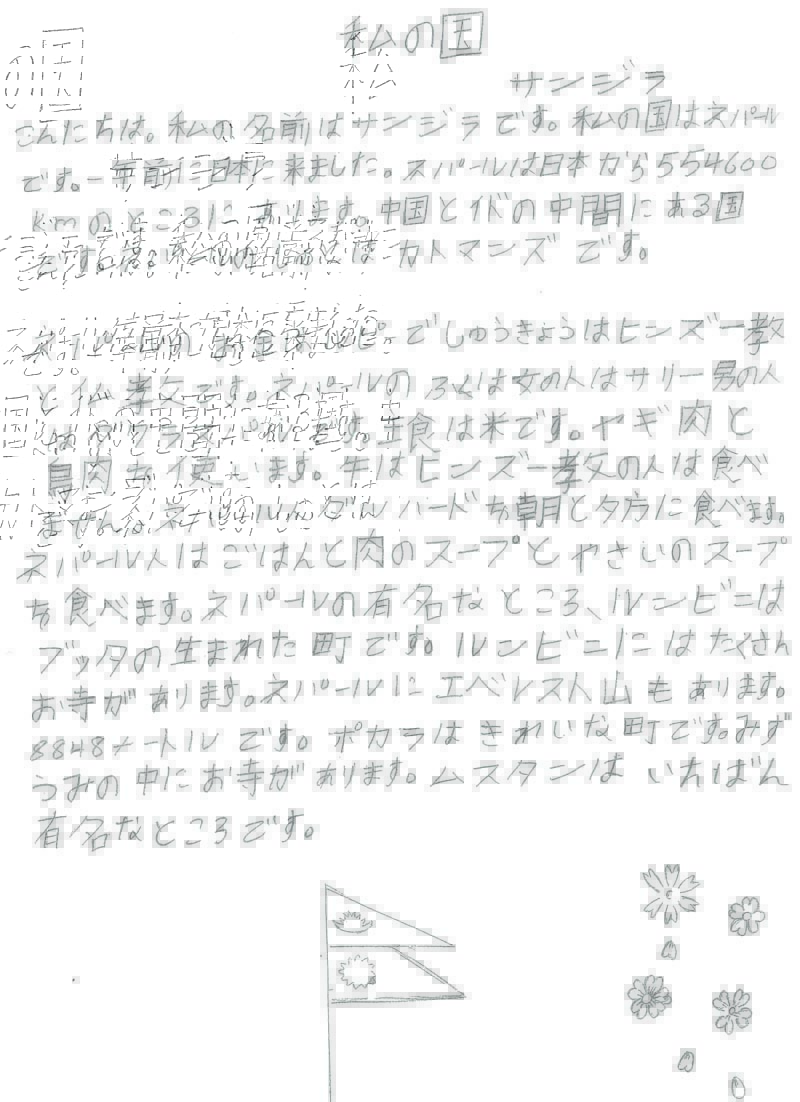 私の国
サンジラ
こんにちは。私の名前はサンジラです。私の国はネパール
です。一年前に日本に来ました。ネパールは日本から554600
kmのところにあります。中国とインドの中間にある国
です。カトマンズです。
でしゅうきょうはヒンズー教
です。ネパールのふくは女の人はサリー男の人
主食は米です。ヤギ肉と
鳥肉を使います。牛はヒンズー教の人は食べ
ません。朝と夕方に食べます。
ネパール人はごはんと肉のスープとやさいのスープ
を食べます。ネパールの有名なところ、ルンビニは
ブッタの生まれた町です。ルンビニにはたくさん
お寺があります。ネパールにエベレスト山もあります。
8848メートルです。ポカラはきれいな町です。みず
うみの中にお寺があります。ムスタンはいちばん
有名なところです。